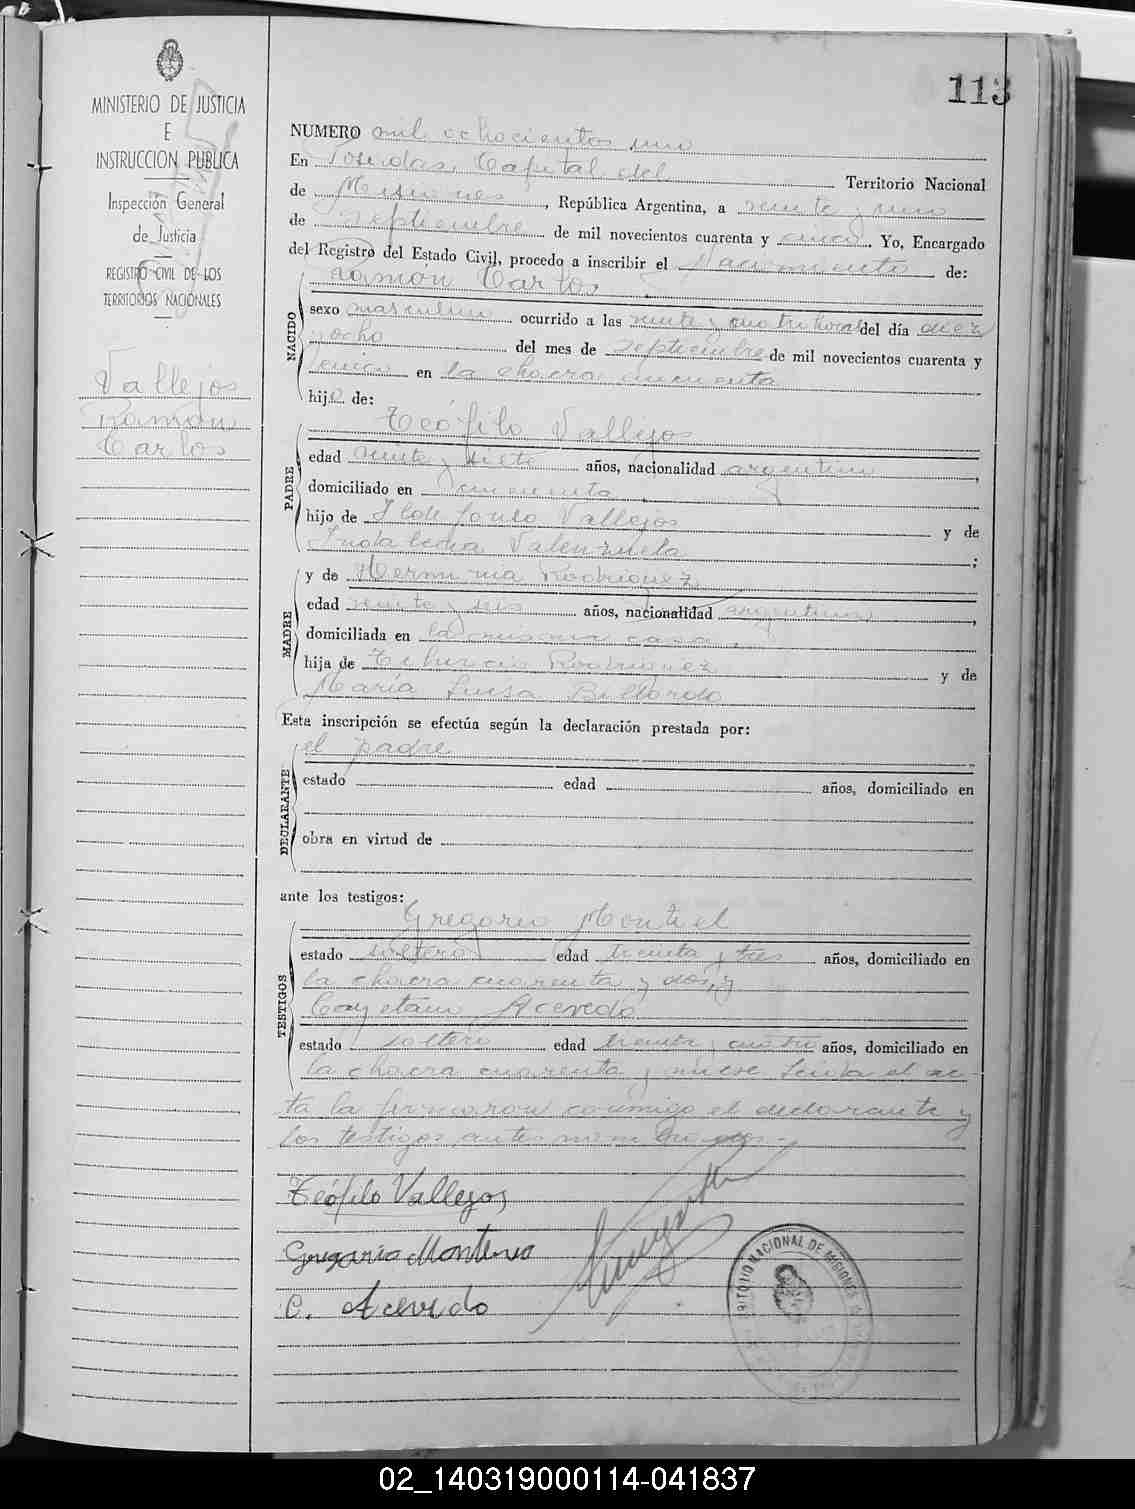 113
MINISTERIO DE JUSTICIA
E
INSTRUCCION PUBLICA
Inspección General
de Justicia
REGISTRO CIVIL DE LOS
TERRITORIOS NACIONALES
Vallejos
Ramón
Carlos
NUMERO mil ochocientos uno
En Posadas, Capital del Territorio Nacional
de Misiones, República Argentina, a veinte y uno
de Septiembre de mil novecientos cuarenta y cinco. Yo, Encargado
del Registro del Estado Civil, procedo a inscribir el Nacimiento de:
NACIDO
Ramón Carlos
sexo masculino ocurrido a las veinte y cuatro horas del día diez
y ocho del mes de Septiembre de mil novecientos cuarenta y
cinco en la chacra cincuenta
hijo de:
PADRE
Teófilo Vallejos
edad veinte y siete años, nacionalidad argentino,
domiciliado en cincuenta
hijo de Ildefonso Vallejos y de
Indalecia Valenzuela;
MADRE
y de Herminia Rodriguez
edad veinte y seis años, nacionalidad argentina,
domiciliada en la misma casa,
hija de Rodriguez y de
María Luisa
Esta inscripción se efectúa según la declaración prestada por:
DECLARANTE
el padre
estado edad años, domiciliado en
obra en virtud de
ante los testigos:
TESTIGOS
Gregorio Montiel
estado soltero edad treinta y tres años, domiciliado en
la chacra cuarenta y dos, y
Cayetano Acevedo
estado soltero edad treinta y cuatro años, domiciliado en
la chacra cuarenta y nueve Leída el ac-
ta la firmaron conmigo el declarante y
los testigos antes nombrados.-
Teófilo Vallejos
Gregorio
C. Acevedo
TERRITORIO NACIONAL DE MISIONES
02_140319000114-041837